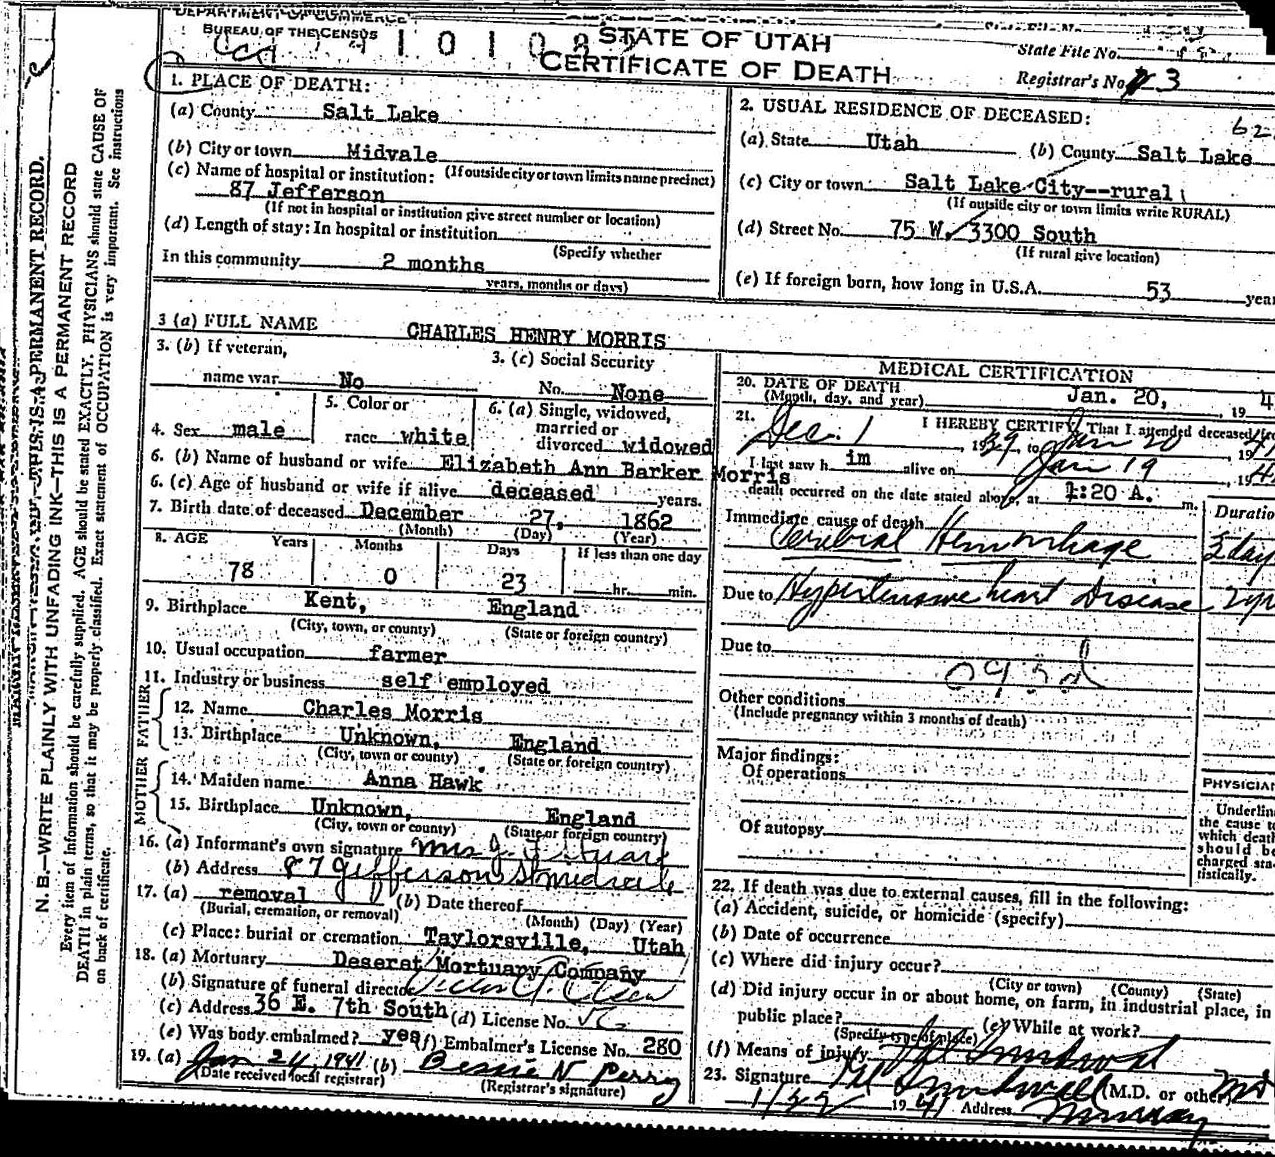 DEPARTMENT OF COMMERCE
BUREAU OF THE CENSUS
STATE OF UTAH
CERTIFICATE OF DEATH
State File No.
Registrar's No. 3
1. PLACE OF DEATH:
(a) County Salt Lake
(b) City or town Midvale
(c) Name of hospital or institution: (If outside city or town limits name precinct)
87 Jefferson
(If not in hospital or institution give street number or location)
(d) Length of stay: In hospital or institution
(Specify whether
In this community 2 months
years, months or days)
2. USUAL RESIDENCE OF DECEASED:
62
(a) State Utah (b) County Salt Lake
(c) City or town Salt Lake City--rural
(If outside city or town limits write RURAL)
(d) Street No. 75 W. 3300 South
(If rural give location)
(e) If foreign born, how long in U.S.A. 53 year
3 (a) FULL NAME CHARLES HENRY MORRIS
3. (b) If veteran,
name war No
3. (c) Social Security
No. None
4. Sex male
5. Color or
race white
6. (a) Single, widowed,
married or
divorced widowed
6. (b) Name of husband or wife Elizabeth Ann Barker Morris
6. (c) Age of husband or wife if alive deceased years.
7. Birth date of deceased December 27, 1862
(Month) (Day) (Year)
8. AGE Years Months Days If less than one day
78 0 23 hr. min.
9. Birthplace Kent, England
(City, town, or county) (State or foreign country)
10. Usual occupation farmer
11. Industry or business self employed
FATHER
12. Name Charles Morris
13. Birthplace Unknown, England
(City, town or county) (State or foreign country)
MOTHER
14. Maiden name Anna Hawk
15. Birthplace Unknown, England
(City, town or county) (State or foreign country)
16. (a) Informant's own signature Mrs J. F. Stuart
(b) Address 87 Jefferson St Midvale
17. (a) removal (b) Date thereof
(Burial, cremation, or removal) (Month) (Day) (Year)
(c) Place: burial or cremation Taylorsville, Utah
18. (a) Mortuary Deseret Mortuary Company
(b) Signature of funeral director Victor G. Olsen
(c) Address 36 E. 7th South (d) License No.
(e) Was body embalmed? yes (f) Embalmer's License No. 280
19. (a) Jan 24, 1941 (b) Bessie N Perry
(Date received local registrar) (Registrar's signature)
MEDICAL CERTIFICATION
20. DATE OF DEATH
(Month, day, and year) Jan. 20, , 19 4
21. I HEREBY CERTIFY That I attended deceased
Dec. 1 , 19 to Jan 20 , 19
I last saw h im alive on Jan 19 , 194
death occurred on the date stated above, at 1:20 A. m.
Duratio
Immediate cause of death
Cerebral Hemorrhage 3 day
Due to Hypertensive heart Disease 2 yr
Due to
Other conditions
(Include pregnancy within 3 months of death)
Major findings:
Of operations
Of autopsy
PHYSICIAN
Underlin
the cause to
which death
should be
charged sta-
tistically.
22. If death was due to external causes, fill in the following:
(a) Accident, suicide, or homicide (specify)
(b) Date of occurrence
(c) Where did injury occur?
(City or town) (County) (State)
(d) Did injury occur in or about home, on farm, in industrial place, in
public place?
(Specify type of place) (e) While at work?
(f) Means of injury
23. Signature (M.D. or other) MD
1/22 1941 Address Murray
N. B.—WRITE PLAINLY WITH UNFADING INK—THIS IS A PERMANENT RECORD
Every item of information should be carefully supplied. AGE should be stated EXACTLY. PHYSICIANS should state CAUSE OF
DEATH in plain terms, so that it may be properly classified. Exact statement of OCCUPATION is very important. See instructions
on back of certificate.